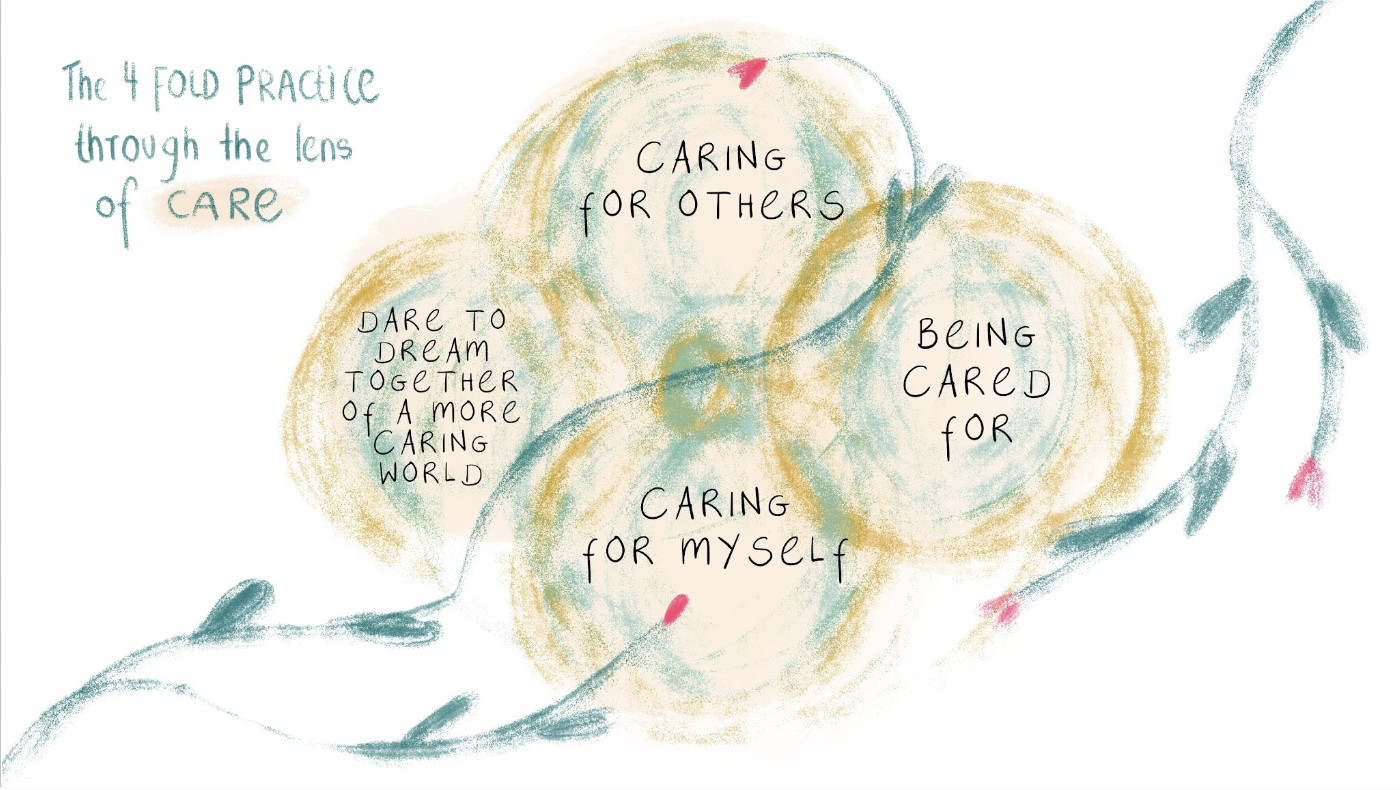 The 4 FOLD PRACTICE
through the lens
of CARE
CARING
fOR OTHERS
DARE TO
DREAM
TOGETHER
Of A MORE
CARING
WORLD
BEING
CARED
fOR
CARING
fOR MYSELf